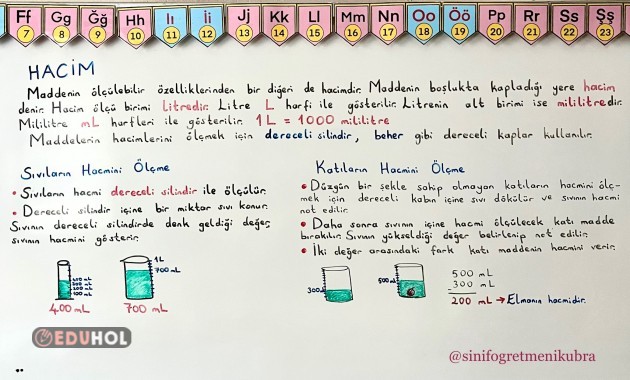 Ff Gg Ğğ Hh Iı İi Jj Kk Ll Mm Nn Oo Öö Pp Rr Ss Şş
7 8 9 10 11 12 13 14 15 16 17 18 19 20 21 22 23
HACİM
Maddenin ölçülebilir özelliklerinden bir diğeri de hacimdir. Maddenin boşlukta kapladığı yere hacim
denir. Hacim ölçü birimi litredir. Litre L harfi ile gösterilir. Litrenin alt birimi ise mililitredir.
Mililitre mL harfleri ile gösterilir. 1L = 1000 mililitre
Maddelerin hacimlerini ölçmek için dereceli silindir, beher gibi dereceli kaplar kullanılır.
Sıvıların Hacmini Ölçme
• Sıvıların hacmi dereceli silindir ile ölçülür.
• Dereceli silindir içine bir miktar sıvı konur.
Sıvının dereceli silindirde denk geldiği değer,
sıvının hacmini gösterir.
400 mL
300 mL
200 mL
100 mL
400 mL
1L
700 mL
700 mL
Katıların Hacmini Ölçme
• Düzgün bir şekle sahip olmayan katıların hacmini ölç-
mek için dereceli kabın içine sıvı dökülür ve sıvının hacmi
not edilir.
• Daha sonra sıvının içine hacmi ölçülecek katı madde
bırakılır. Sıvının yükseldiği değer belirlenip not edilir.
• İki değer arasındaki fark katı maddenin hacmini verir.
300
500
500 mL
300 mL
200 mL → Elmanın hacmidir.
EDUHOL
@sinifogretmenikubra